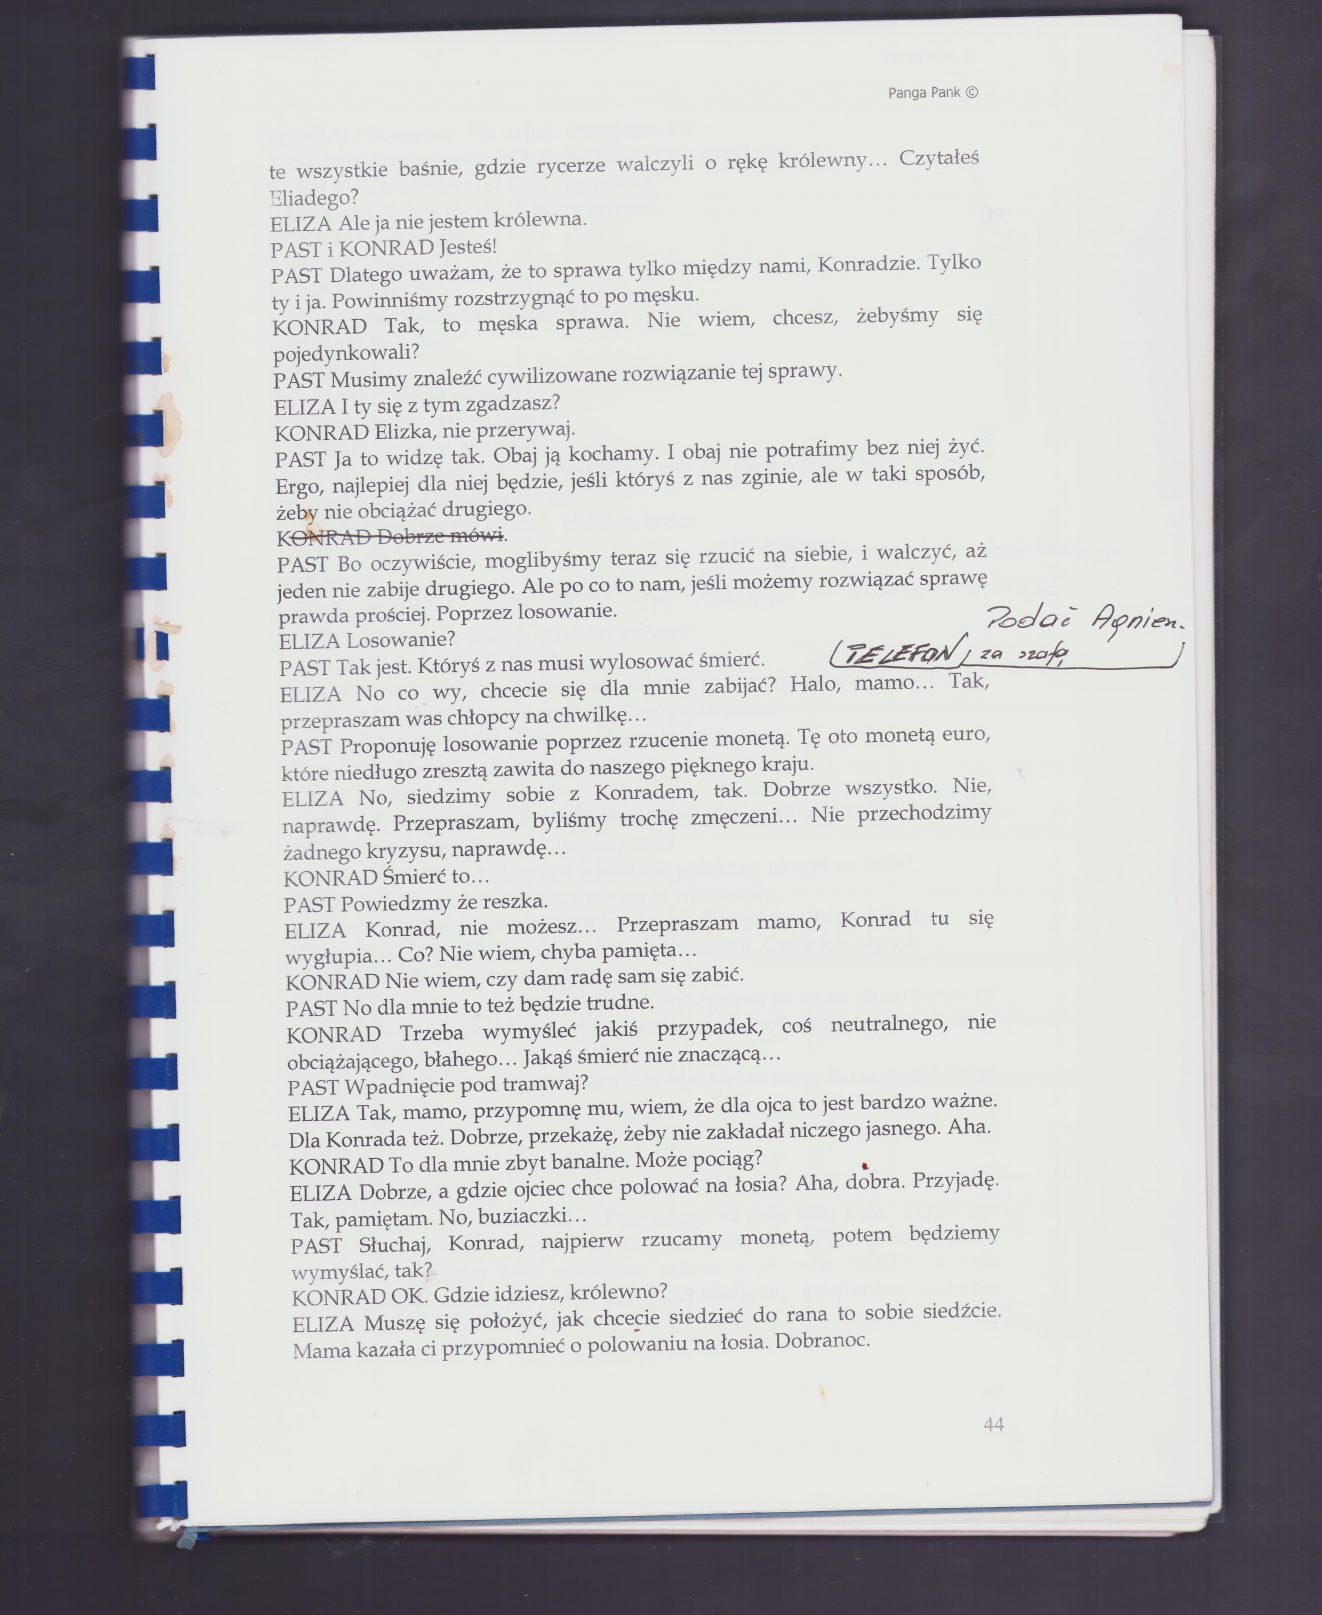 Panga Pank ©
te wszystkie baśnie, gdzie rycerze walczyli o rękę królewny... Czytałeś
Eliadego?
ELIZA Ale ja nie jestem królewna.
PAST i KONRAD Jesteś!
PAST Dlatego uważam, że to sprawa tylko między nami, Konradzie. Tylko
ty i ja. Powinniśmy rozstrzygnąć to po męsku.
KONRAD Tak, to męska sprawa. Nie wiem, chcesz, żebyśmy się
pojedynkowali?
PAST Musimy znaleźć cywilizowane rozwiązanie tej sprawy.
ELIZA I ty się z tym zgadzasz?
KONRAD Elizka, nie przerywaj.
PAST Ja to widzę tak. Obaj ją kochamy. I obaj nie potrafimy bez niej żyć.
Ergo, najlepiej dla niej będzie, jeśli któryś z nas zginie, ale w taki sposób,
żeby nie obciążać drugiego.
KONRAD Dobrze mówi.
PAST Bo oczywiście, moglibyśmy teraz się rzucić na siebie, i walczyć, aż
jeden nie zabije drugiego. Ale po co to nam, jeśli możemy rozwiązać sprawę
prawda prościej. Poprzez losowanie.
Podać Agnien.
ELIZA Losowanie?
(TELEFON) za szafą
PAST Tak jest. Któryś z nas musi wylosować śmierć.
ELIZA No co wy, chcecie się dla mnie zabijać? Halo, mamo... Tak,
przepraszam was chłopcy na chwilkę...
PAST Proponuję losowanie poprzez rzucenie monetą. Tę oto monetą euro,
które niedługo zresztą zawita do naszego pięknego kraju.
ELIZA No, siedzimy sobie z Konradem, tak. Dobrze wszystko. Nie,
naprawdę. Przepraszam, byliśmy trochę zmęczeni... Nie przechodzimy
żadnego kryzysu, naprawdę...
KONRAD Śmierć to...
PAST Powiedzmy że reszka.
ELIZA Konrad, nie możesz... Przepraszam mamo, Konrad tu się
wygłupia... Co? Nie wiem, chyba pamięta...
KONRAD Nie wiem, czy dam radę sam się zabić.
PAST No dla mnie to też będzie trudne.
KONRAD Trzeba wymyśleć jakiś przypadek, coś neutralnego, nie
obciążającego, błahego... Jakąś śmierć nie znaczącą...
PAST Wpadnięcie pod tramwaj?
ELIZA Tak, mamo, przypomnę mu, wiem, że dla ojca to jest bardzo ważne.
Dla Konrada też. Dobrze, przekażę, żeby nie zakładał niczego jasnego. Aha.
KONRAD To dla mnie zbyt banalne. Może pociąg?
ELIZA Dobrze, a gdzie ojciec chce polować na łosia? Aha, dobra. Przyjadę.
Tak, pamiętam. No, buziaczki...
PAST Słuchaj, Konrad, najpierw rzucamy monetą, potem będziemy
wymyślać, tak?
KONRAD OK. Gdzie idziesz, królewno?
ELIZA Muszę się położyć, jak chcecie siedzieć do rana to sobie siedźcie.
Mama kazała ci przypomnieć o polowaniu na łosia. Dobranoc.
44